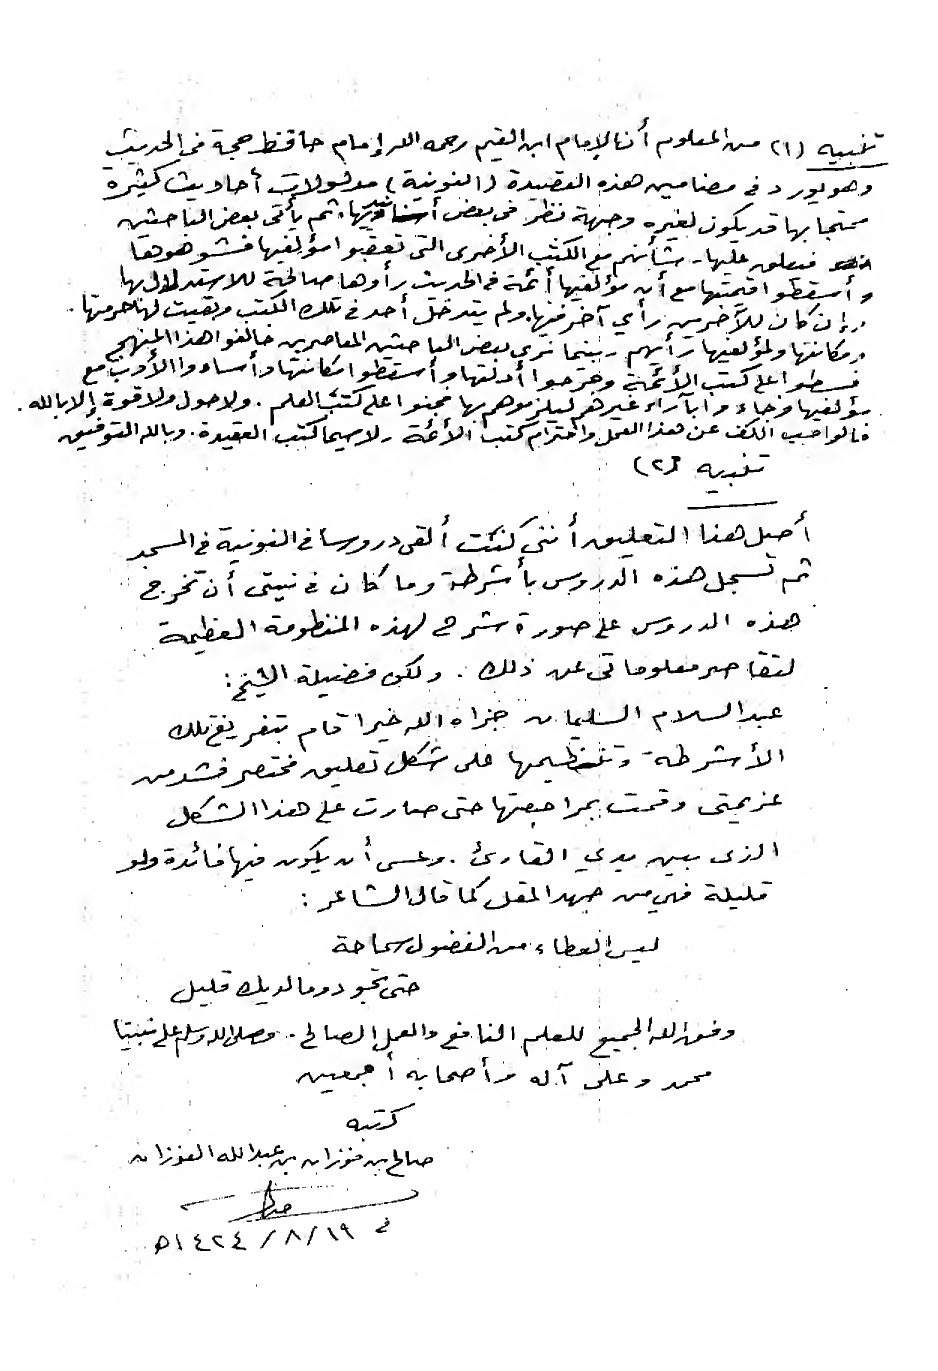 تنبيه (١) من المعلوم أن الإمام ابن القيم رحمه الله إمام حافظ حجة في الحديث
وهو يورد في مضامين هذه القصيدة (النونية) مدلولات أحاديث كثيرة
محتجا بها قد يكون لغيره وجهة نظر في بعض أسانيدها، ثم يأتي بعض الباحثين
فيعلق عليها - شأنهم مع الكتب الأخرى التي تعقبوا مؤلفيها فشوهوها
وأسقطوا قيمتها مع أن مؤلفيها أئمة في الحديث رأوها صالحة للاستدلال بها
وإن كان للآخرين رأي آخر فيها. ولم يتدخل أحد في تلك الكتب وبقيت لها حرمتها.
ومكانتها ولمؤلفيها رأيهم - بينما نرى بعض الباحثين المعاصرين خالفوا هذا المنهج
فسطوا على كتب الأئمة وجرحوا أدلتها وأسقطوا مكانتها وأساءوا الأدب مع
مؤلفيها وجاءوا بآراء غيرهم ليلزموهم بها فجنوا على كتب العلم. ولا حول ولا قوة إلا بالله.
فالواجب الكف عن هذا العمل واحترام كتب الأئمة - لا سيما كتب العقيدة. وبالله التوفيق
تنبيه (٢)
أصل هذا التعليق أنني كنت ألقي دروسا في النونية في المسجد
ثم تسجل هذه الدروس بأشرطة وما كان في نيتي أن تخرج
هذه الدروس على صورة شرح لهذه المنظومة العظيمة
لتقاصر معلوماتي عن ذلك. ولكن فضيلة الشيخ:
عبدالسلام السليمان جزاه الله خيرا قام بتفريغ تلك
الأشرطة وتنظيمها على شكل تعليق مختصر فشد من
عزيمتي وقمت بمراجعتها حتى صارت على هذا الشكل
الذي بين يدي القارئ. وعسى أن يكون فيها فائدة ولو
قليلة فهي من جهد المقل كما قال الشاعر:
ليس العطاء من الفضول سماحة
حتى تجود وما لديك قليل
وفق الله الجميع للعلم النافع والعمل الصالح. وصلى الله وسلم على نبينا
محمد وعلى آله وأصحابه أجمعين
كتبه
صالح بن فوزان بن عبدالله الفوزان
في ١٩/٨/١٤٢٤هـ